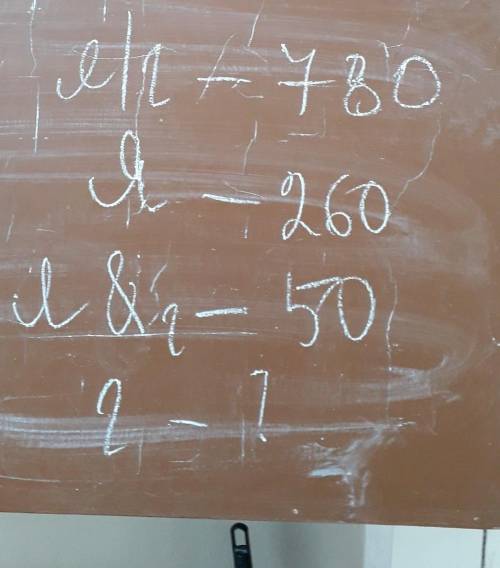 л|г – 780
л – 260
л & г – 50
г – ?